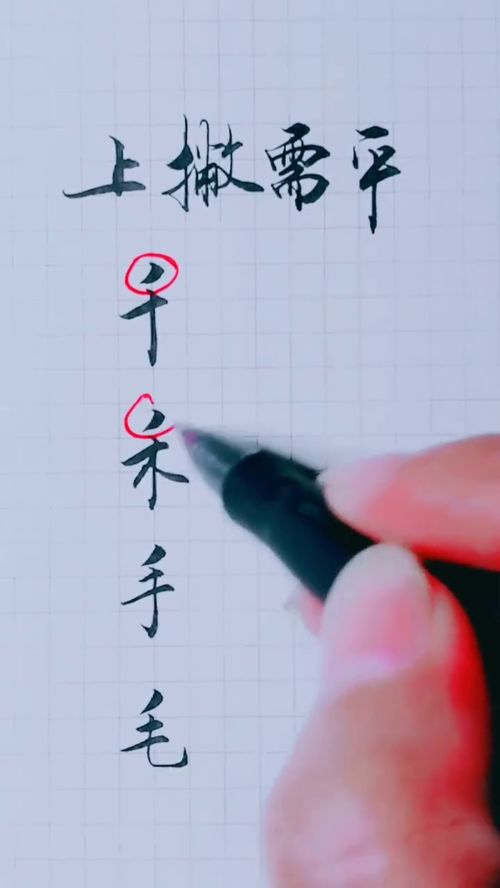 上撇需平
千
禾
手
毛